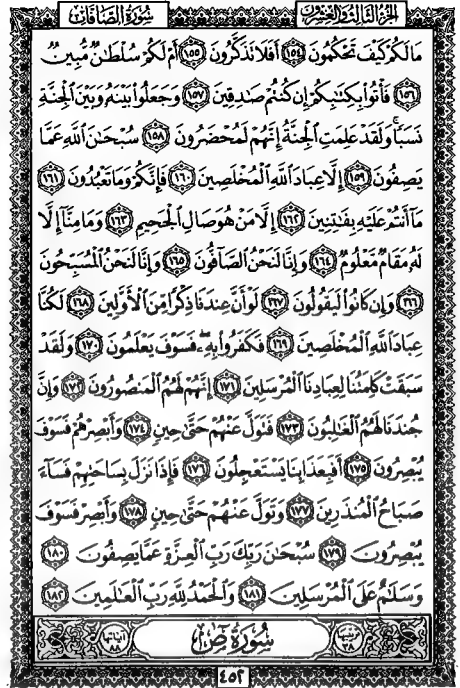 سُورَةُ الصَّافَّاتِ الجزء الثالث والعشرون
مَا لَكُمْ كَيْفَ تَحْكُمُونَ ١٥٤ أَفَلَا تَذَكَّرُونَ ١٥٥ أَمْ لَكُمْ سُلْطَانٌ مُّبِينٌ
١٥٦ فَأْتُوا بِكِتَابِكُمْ إِن كُنتُمْ صَادِقِينَ ١٥٧ وَجَعَلُوا بَيْنَهُ وَبَيْنَ الْجِنَّةِ
نَسَبًا وَلَقَدْ عَلِمَتِ الْجِنَّةُ إِنَّهُمْ لَمُحْضَرُونَ ١٥٨ سُبْحَانَ اللَّهِ عَمَّا
يَصِفُونَ ١٥٩ إِلَّا عِبَادَ اللَّهِ الْمُخْلَصِينَ ١٦٠ فَإِنَّكُمْ وَمَا تَعْبُدُونَ ١٦١
مَا أَنتُمْ عَلَيْهِ بِفَاتِنِينَ ١٦٢ إِلَّا مَنْ هُوَ صَالِ الْجَحِيمِ ١٦٣ وَمَا مِنَّا إِلَّا
لَهُ مَقَامٌ مَّعْلُومٌ ١٦٤ وَإِنَّا لَنَحْنُ الصَّافُّونَ ١٦٥ وَإِنَّا لَنَحْنُ الْمُسَبِّحُونَ
١٦٦ وَإِن كَانُوا لَيَقُولُونَ ١٦٧ لَوْ أَنَّ عِندَنَا ذِكْرًا مِّنَ الْأَوَّلِينَ ١٦٨ لَكُنَّا
عِبَادَ اللَّهِ الْمُخْلَصِينَ ١٦٩ فَكَفَرُوا بِهِ فَسَوْفَ يَعْلَمُونَ ١٧٠ وَلَقَدْ
سَبَقَتْ كَلِمَتُنَا لِعِبَادِنَا الْمُرْسَلِينَ ١٧١ إِنَّهُمْ لَهُمُ الْمَنصُورُونَ ١٧٢ وَإِنَّ
جُندَنَا لَهُمُ الْغَالِبُونَ ١٧٣ فَتَوَلَّ عَنْهُمْ حَتَّى حِينٍ ١٧٤ وَأَبْصِرْهُمْ فَسَوْفَ
يُبْصِرُونَ ١٧٥ أَفَبِعَذَابِنَا يَسْتَعْجِلُونَ ١٧٦ فَإِذَا نَزَلَ بِسَاحَتِهِمْ فَسَاءَ
صَبَاحُ الْمُنذَرِينَ ١٧٧ وَتَوَلَّ عَنْهُمْ حَتَّى حِينٍ ١٧٨ وَأَبْصِرْ فَسَوْفَ
يُبْصِرُونَ ١٧٩ سُبْحَانَ رَبِّكَ رَبِّ الْعِزَّةِ عَمَّا يَصِفُونَ ١٨٠
وَسَلَامٌ عَلَى الْمُرْسَلِينَ ١٨١ وَالْحَمْدُ لِلَّهِ رَبِّ الْعَالَمِينَ ١٨٢
ترتيبها ٣٨ سُورَةُ ص آياتها ٨٨
٤٥٢